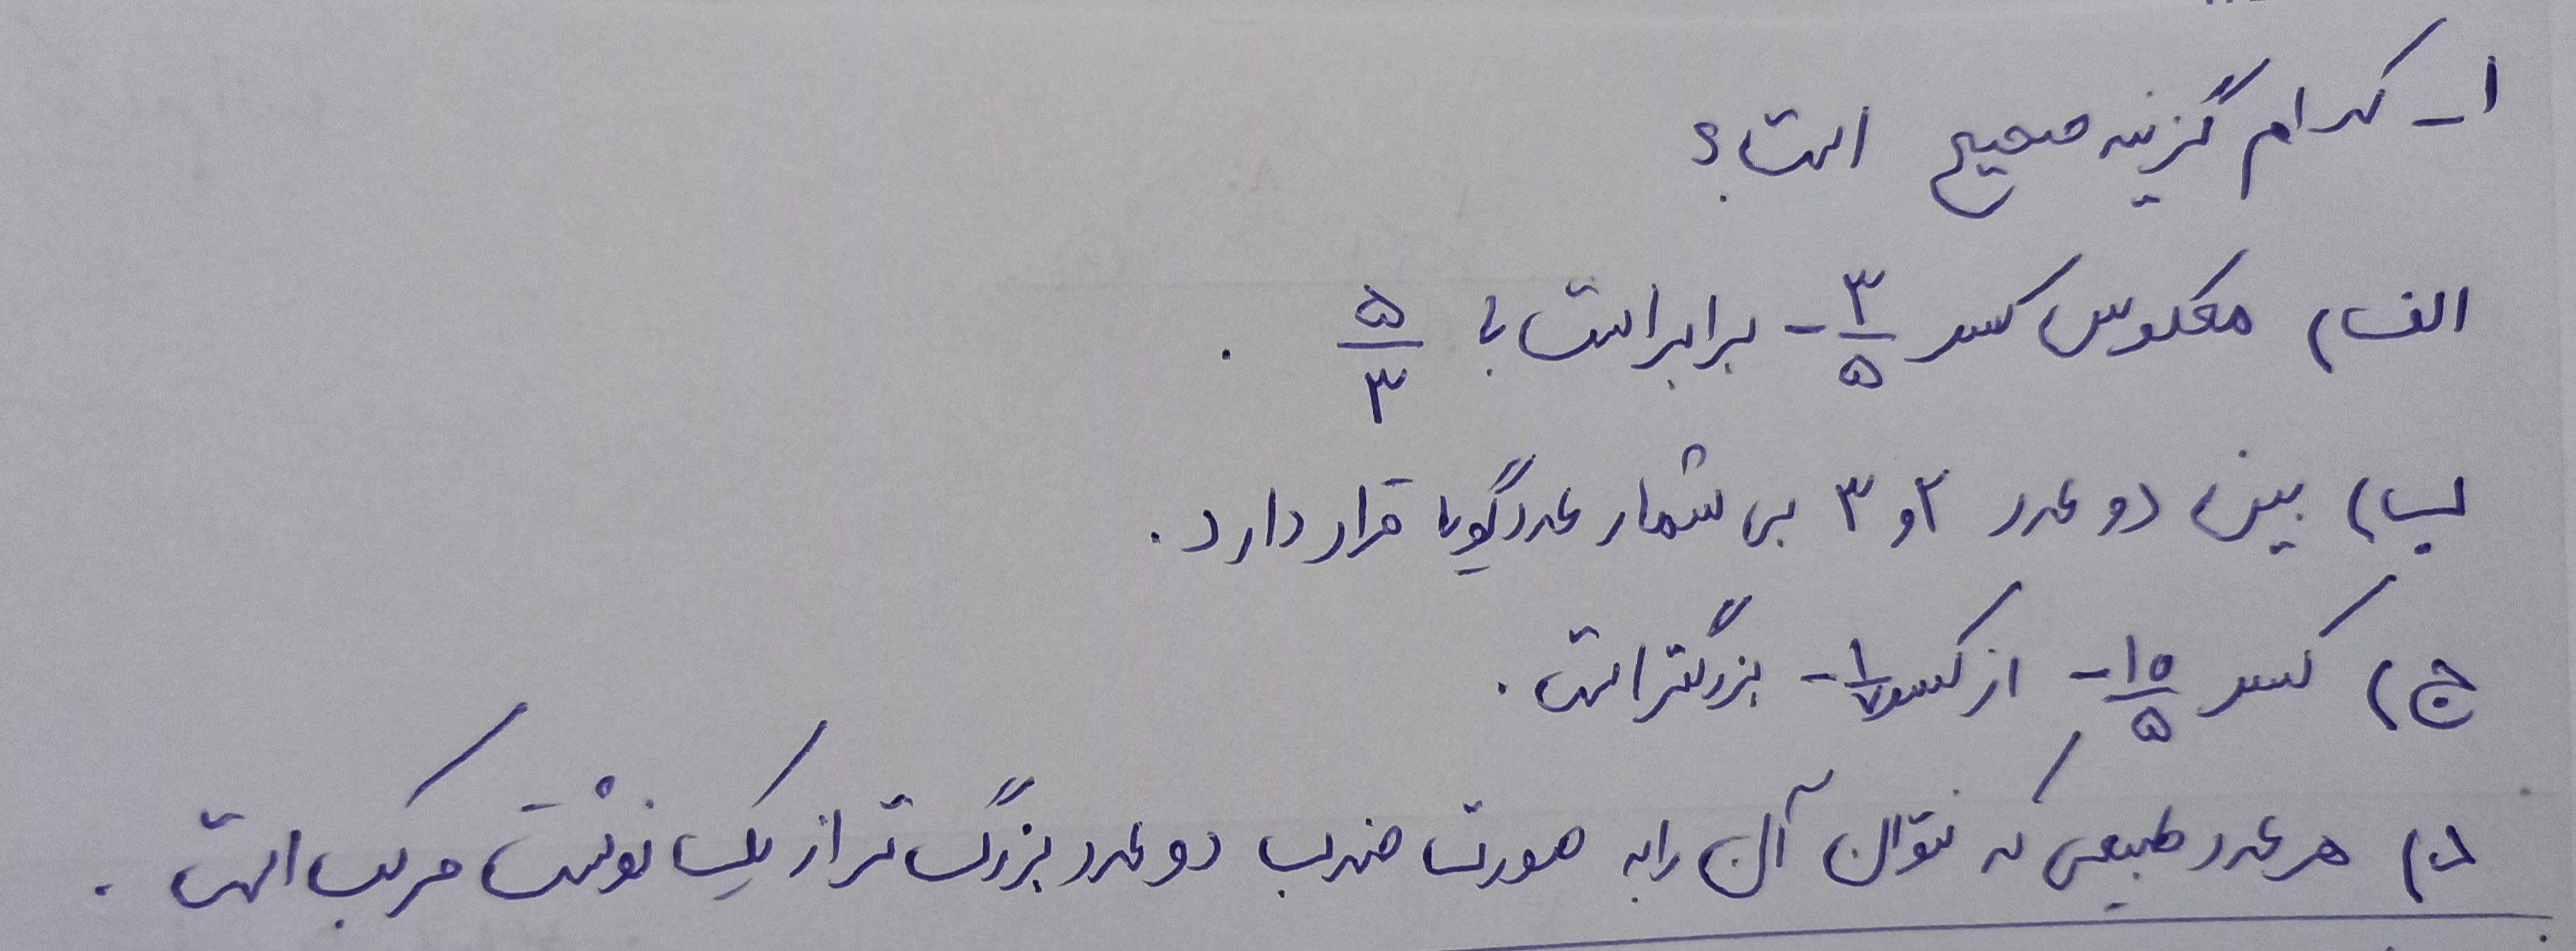 ۱- کدام گزینه صحیح است؟
الف) معکوس کسر ۳/۵- برابر است با ۵/۳ .
ب) بین دو عدد ۲ و ۳ بی شمار عدد گویا قرار دارد.
ج) کسر ۱۵/۵- از کسر ۱/۷- بزرگتر است.
د) هر عدد طبیعی که نتوان آن را به صورت ضرب دو عدد بزرگ تر از یک نوشت مرکب است.